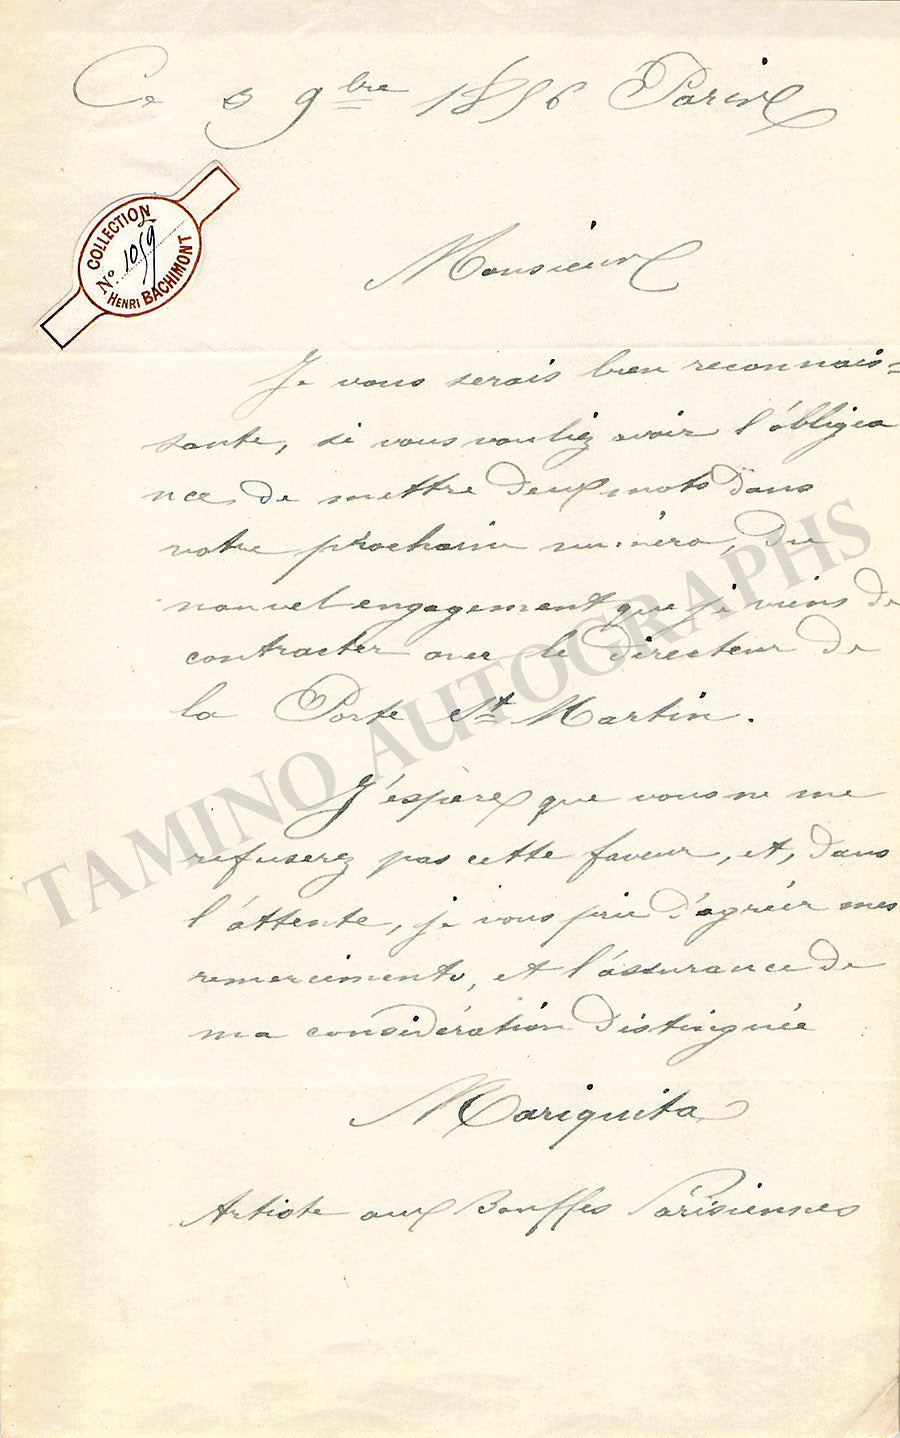 Ce 5 9bre 1856 Paris
COLLECTION
No 1059
HENRI BACHIMONT
Monsieur
Je vous serais bien reconnais=
sante, si vous vouliez avoir l'obligea
nce, de mettre deux mots dans
votre prochain numéro, du
nouvel engagement que je viens de
contracter avec le directeur de
la Porte St Martin.
J'espère que vous ne me
refuserez pas cette faveur, et, dans
l'attente, je vous prie d'agréer mes
remerciments, et l'assurance de
ma considération distinguée
Mariquita
Artiste aux Bouffes Parisiennes
TAMINO AUTOGRAPHS